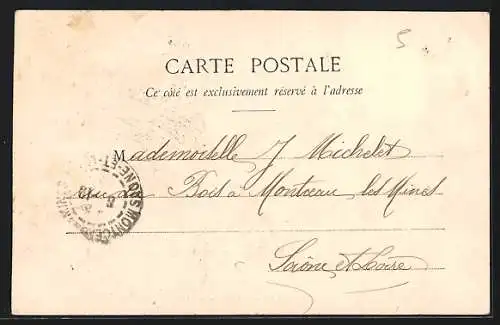 5
CARTE POSTALE
Ce côté est exclusivement réservé à l'adresse
Mademoiselle J Michelet
rue du Bois à Montceau les Mines
Saône et Loire